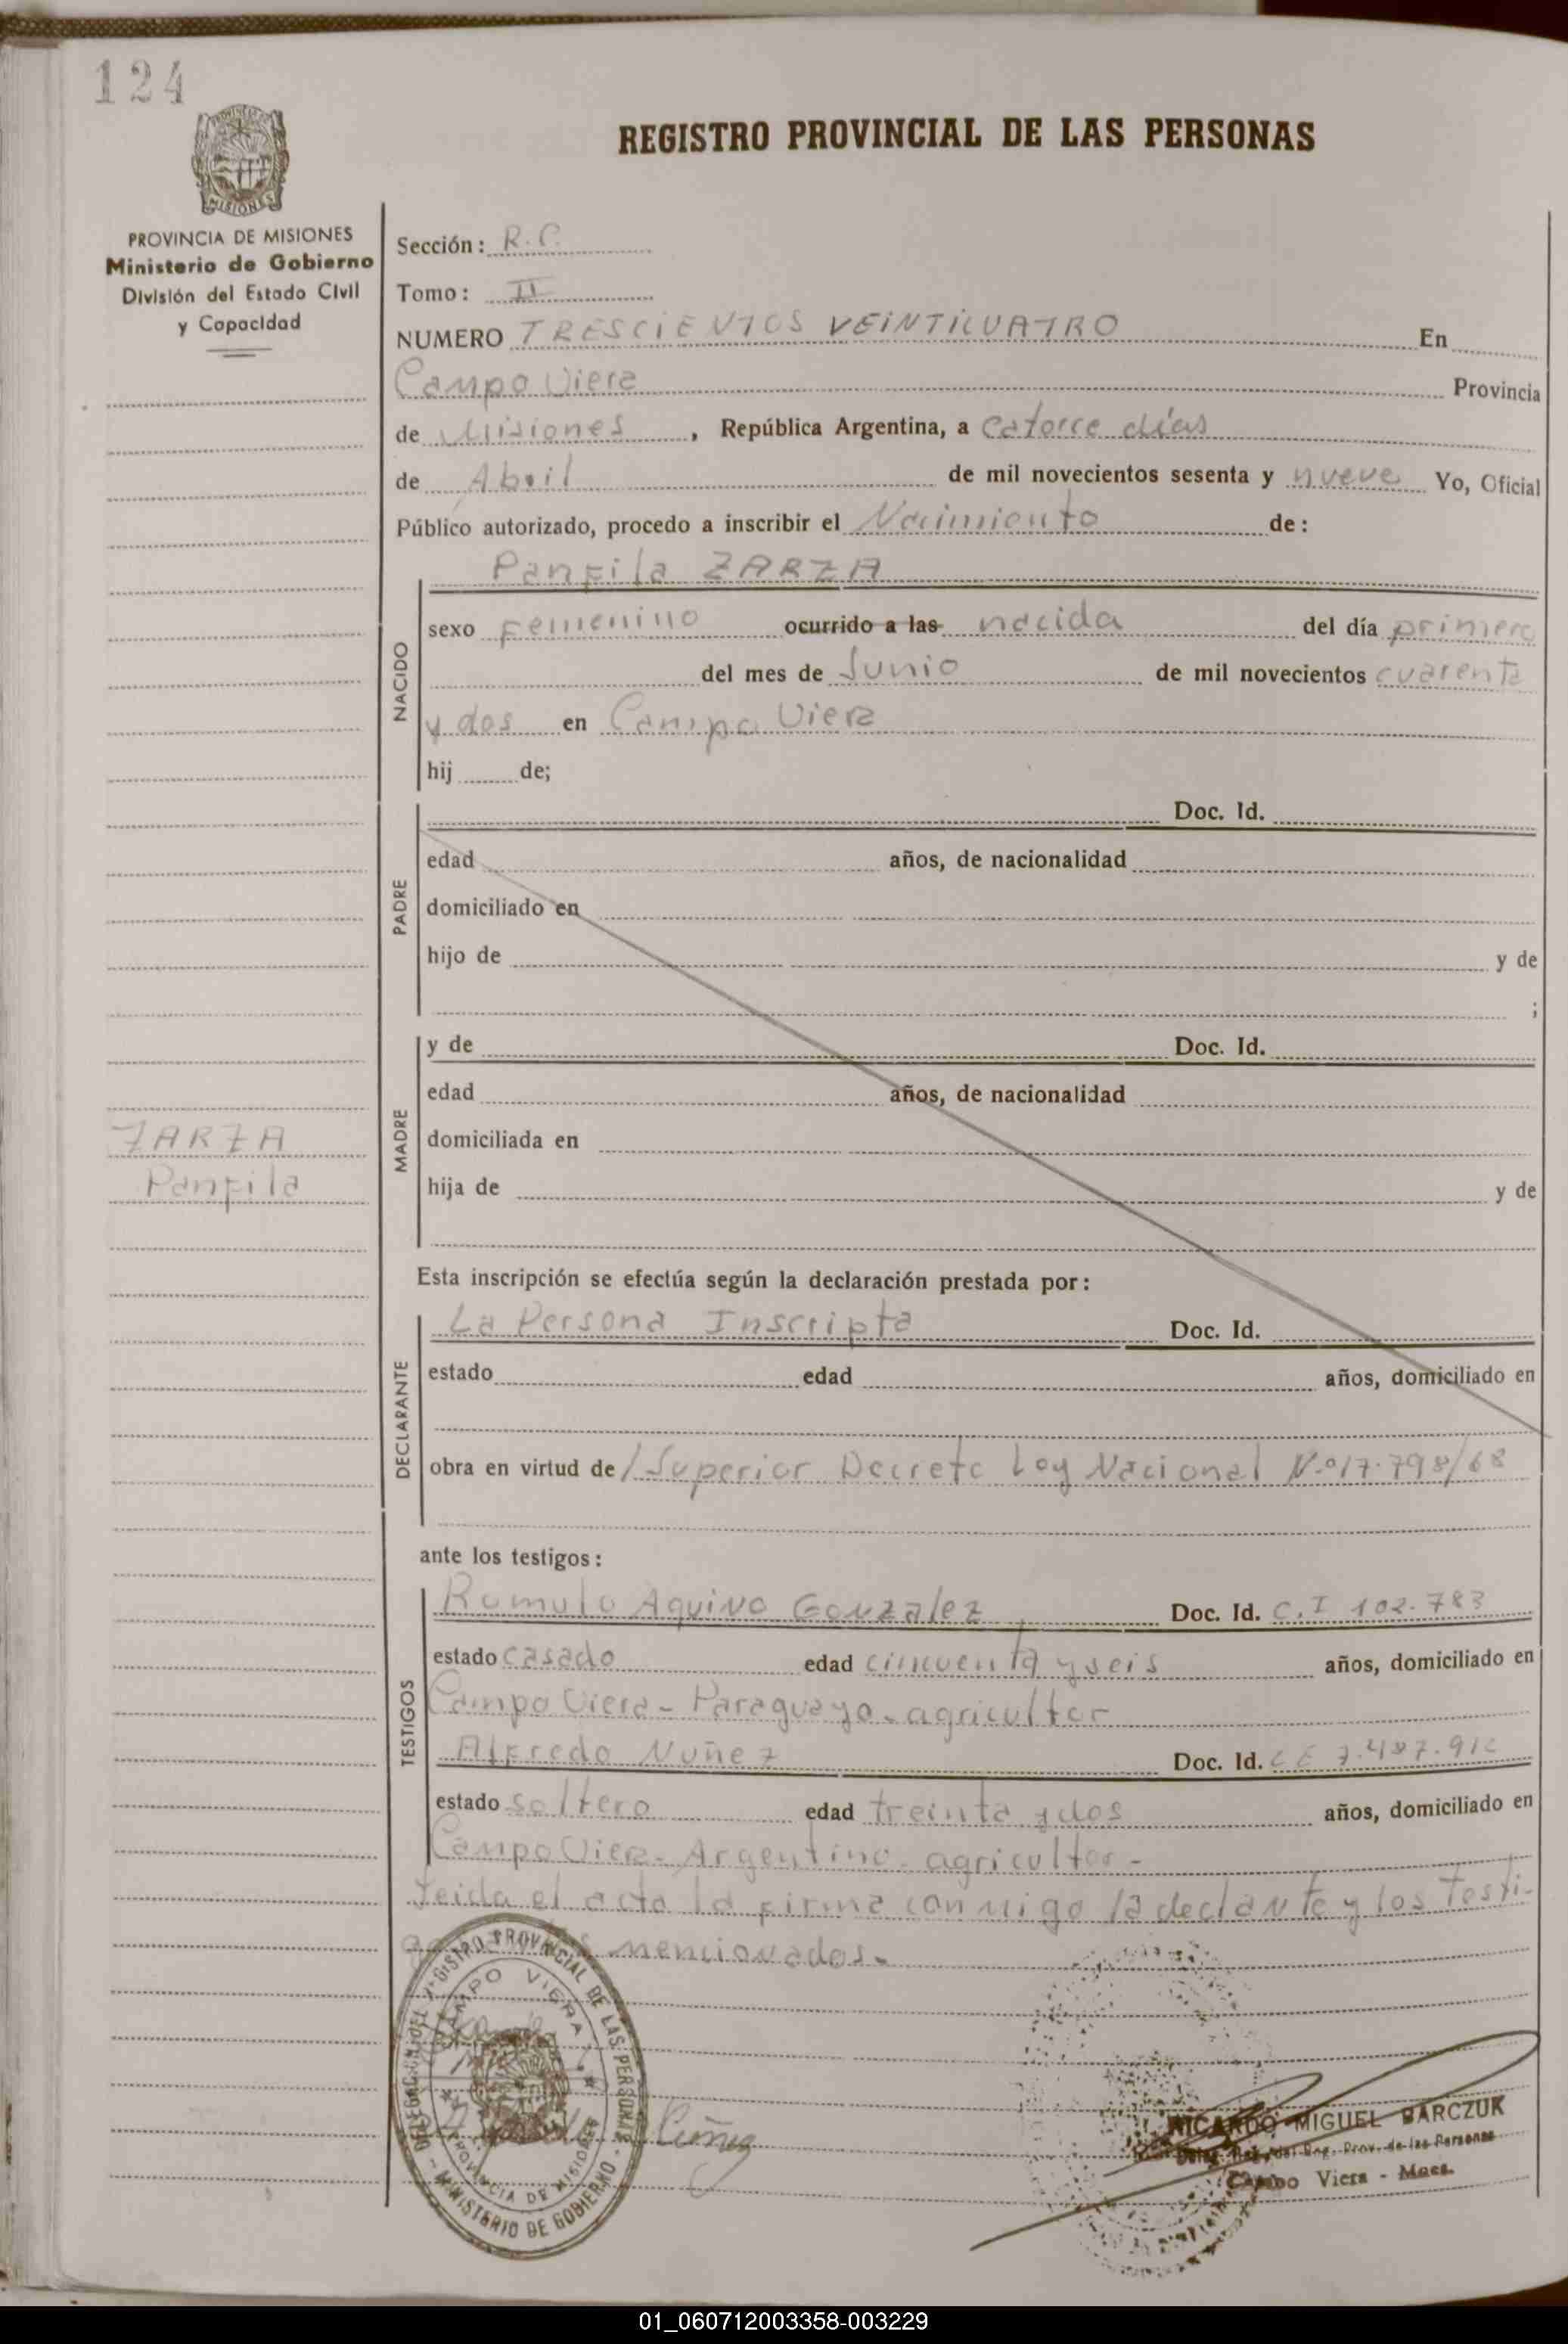 124
REGISTRO PROVINCIAL DE LAS PERSONAS
MISIONES
PROVINCIA DE MISIONES
Ministerio de Gobierno
División del Estado Civil
y Capacidad
Sección: R.C.
Tomo: II
NUMERO TRESCIENTOS VEINTICUATRO En
Campo Viera Provincia
de Misiones, República Argentina, a catorce días
de Abril de mil novecientos sesenta y nueve Yo, Oficial
Público autorizado, procedo a inscribir el Nacimiento de:
NACIDO
Panfila ZARZA
sexo Femenino ocurrido a las nacida del día primero
del mes de Junio de mil novecientos cuarenta
y dos en Campo Viera
hij de;
PADRE
Doc. Id.
edad años, de nacionalidad
domiciliado en
hijo de y de
;
MADRE
y de Doc. Id.
edad años, de nacionalidad
domiciliada en
hija de y de
ZARZA
Panfila
Esta inscripción se efectúa según la declaración prestada por:
DECLARANTE
La Persona Inscripta Doc. Id.
estado edad años, domiciliado en
obra en virtud de / Superior Decreto Ley Nacional N.º 17.798/68
ante los testigos:
TESTIGOS
Romulo Aquino Gonzalez Doc. Id. C.I 102.783
estado casado edad cincuenta y seis años, domiciliado en
Campo Viera - Paraguayo - agricultor
Alfredo Nuñez Doc. Id. 7.487.912
estado soltero edad treinta y dos años, domiciliado en
Campo Viera - Argentino - agricultor -
Leida el acta la firma conmigo la declante y los testi-
mencionados.
REGISTRO PROVINCIAL DE LAS PERSONAS
CAMPO VIERA
PROVINCIA DE MISIONES
MINISTERIO DE GOBIERNO
Nuñez
RICARDO MIGUEL BARCZUK
Reg. Prov. de las Personas
Campo Viera - Mnes.
01_060712003358-003229